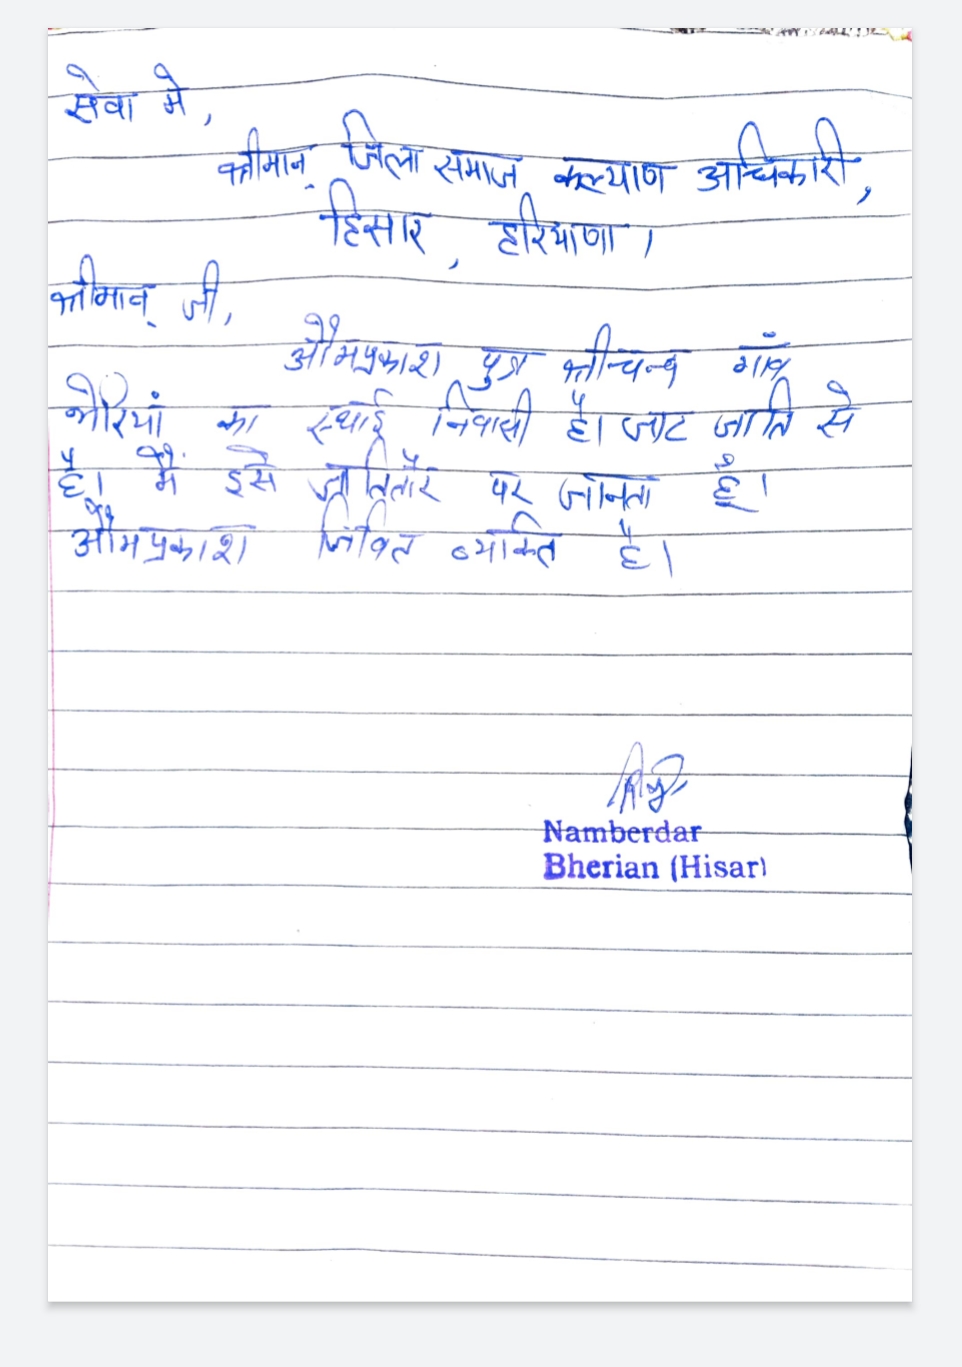 सेवा मे,
श्रीमान् जिला समाज कल्याण अधिकारी,
हिसार, हरियाणा।
श्रीमान् जी,
औमप्रकाश पुत्र श्रीचन्द गाँव
भेरियां का स्थाई निवासी है। जाट जाति से
है। मैं इसे जातितौर पर जानता हूँ।
औमप्रकाश जिवित व्यक्ति है।
Namberdar
Bherian (Hisar)